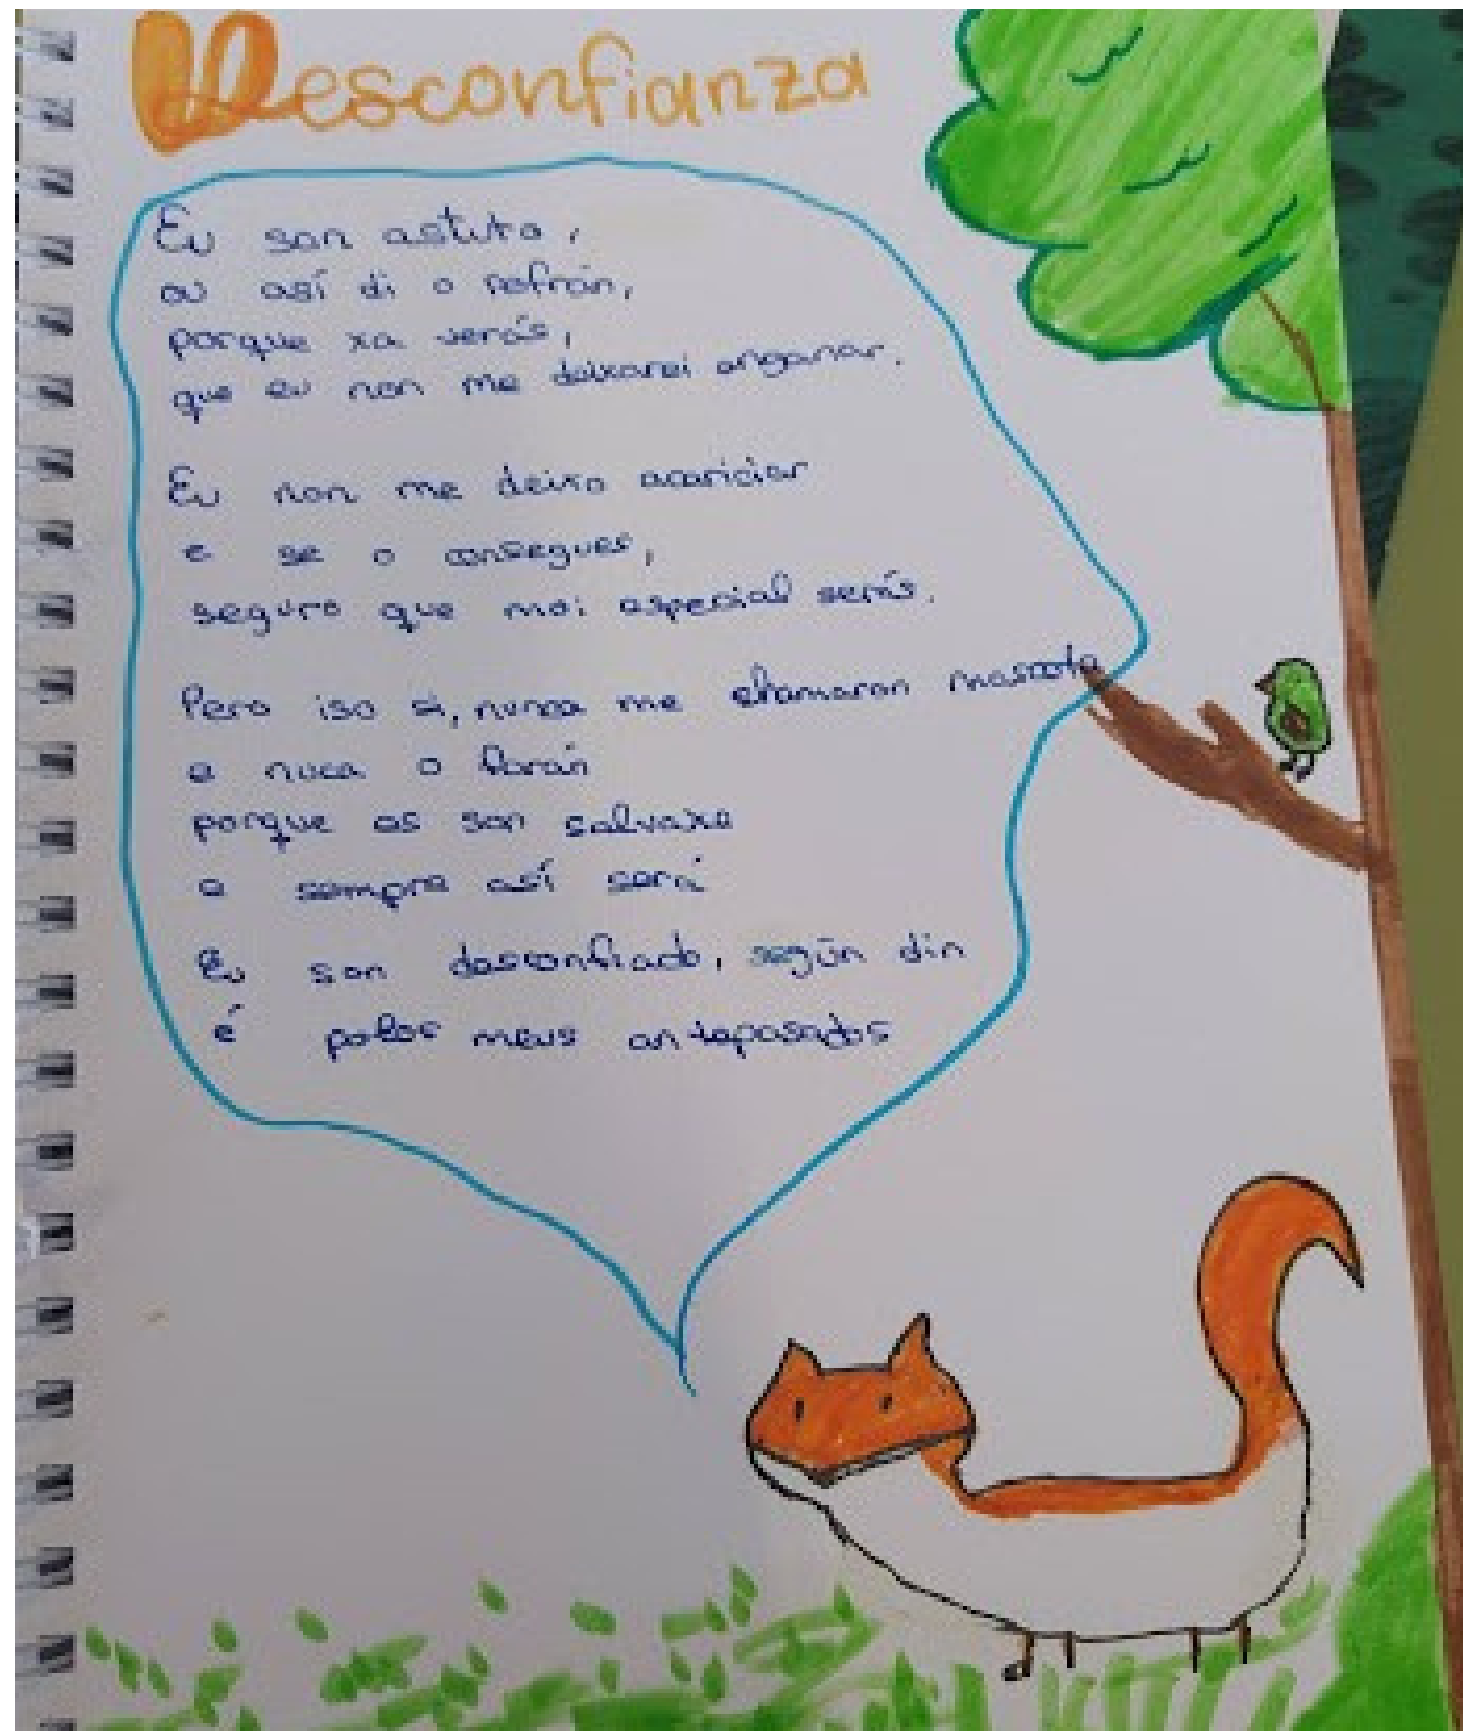 Desconfianza
Eu son astuto,
ou así di o refrán,
porque xa verás,
que eu non me deixarei enganar.
Eu non me deixo acariciar
e se o consegues,
seguro que moi especial serás.
Pero iso si, nunca me chamaron mascota
e nuca o farán
porque os son salvaxe
e sempre así será
Eu son desconfiado, según din
é polos meus antepasados